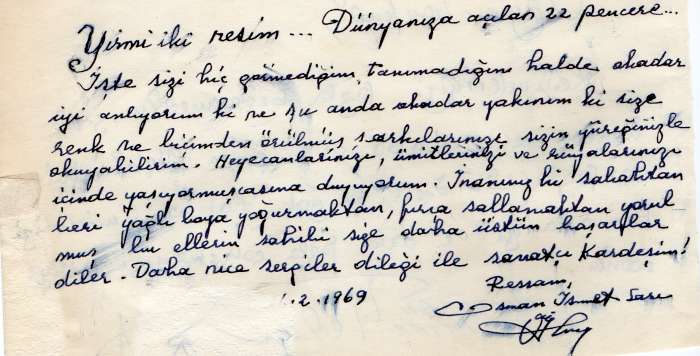 Yirmi iki resim ... Dünyanıza açılan 22 pencere...
İşte sizi hiç görmediğim, tanımadığım halde okadar
iyi anlıyorum ki ve şu anda okadar yakınım ki size
renk ve biçimden örülmüş şarkılarınızı sizin yüreğinizle
okuyabilirim. Heyecanlarınızı, ümitlerinizi ve rüyalarınızı
içinde yaşıyormuşcasına duyuyorum. İnanınız ki sabahtan
beri yağlı boya yoğurmaktan, fırça sallamaktan yorul
muş bu ellerin sahibi size daha üstün başarılar
diler. Daha nice sergiler dileği ile sanatçı Kardeşim!
.2.1969
Ressam,
Osman İsmet